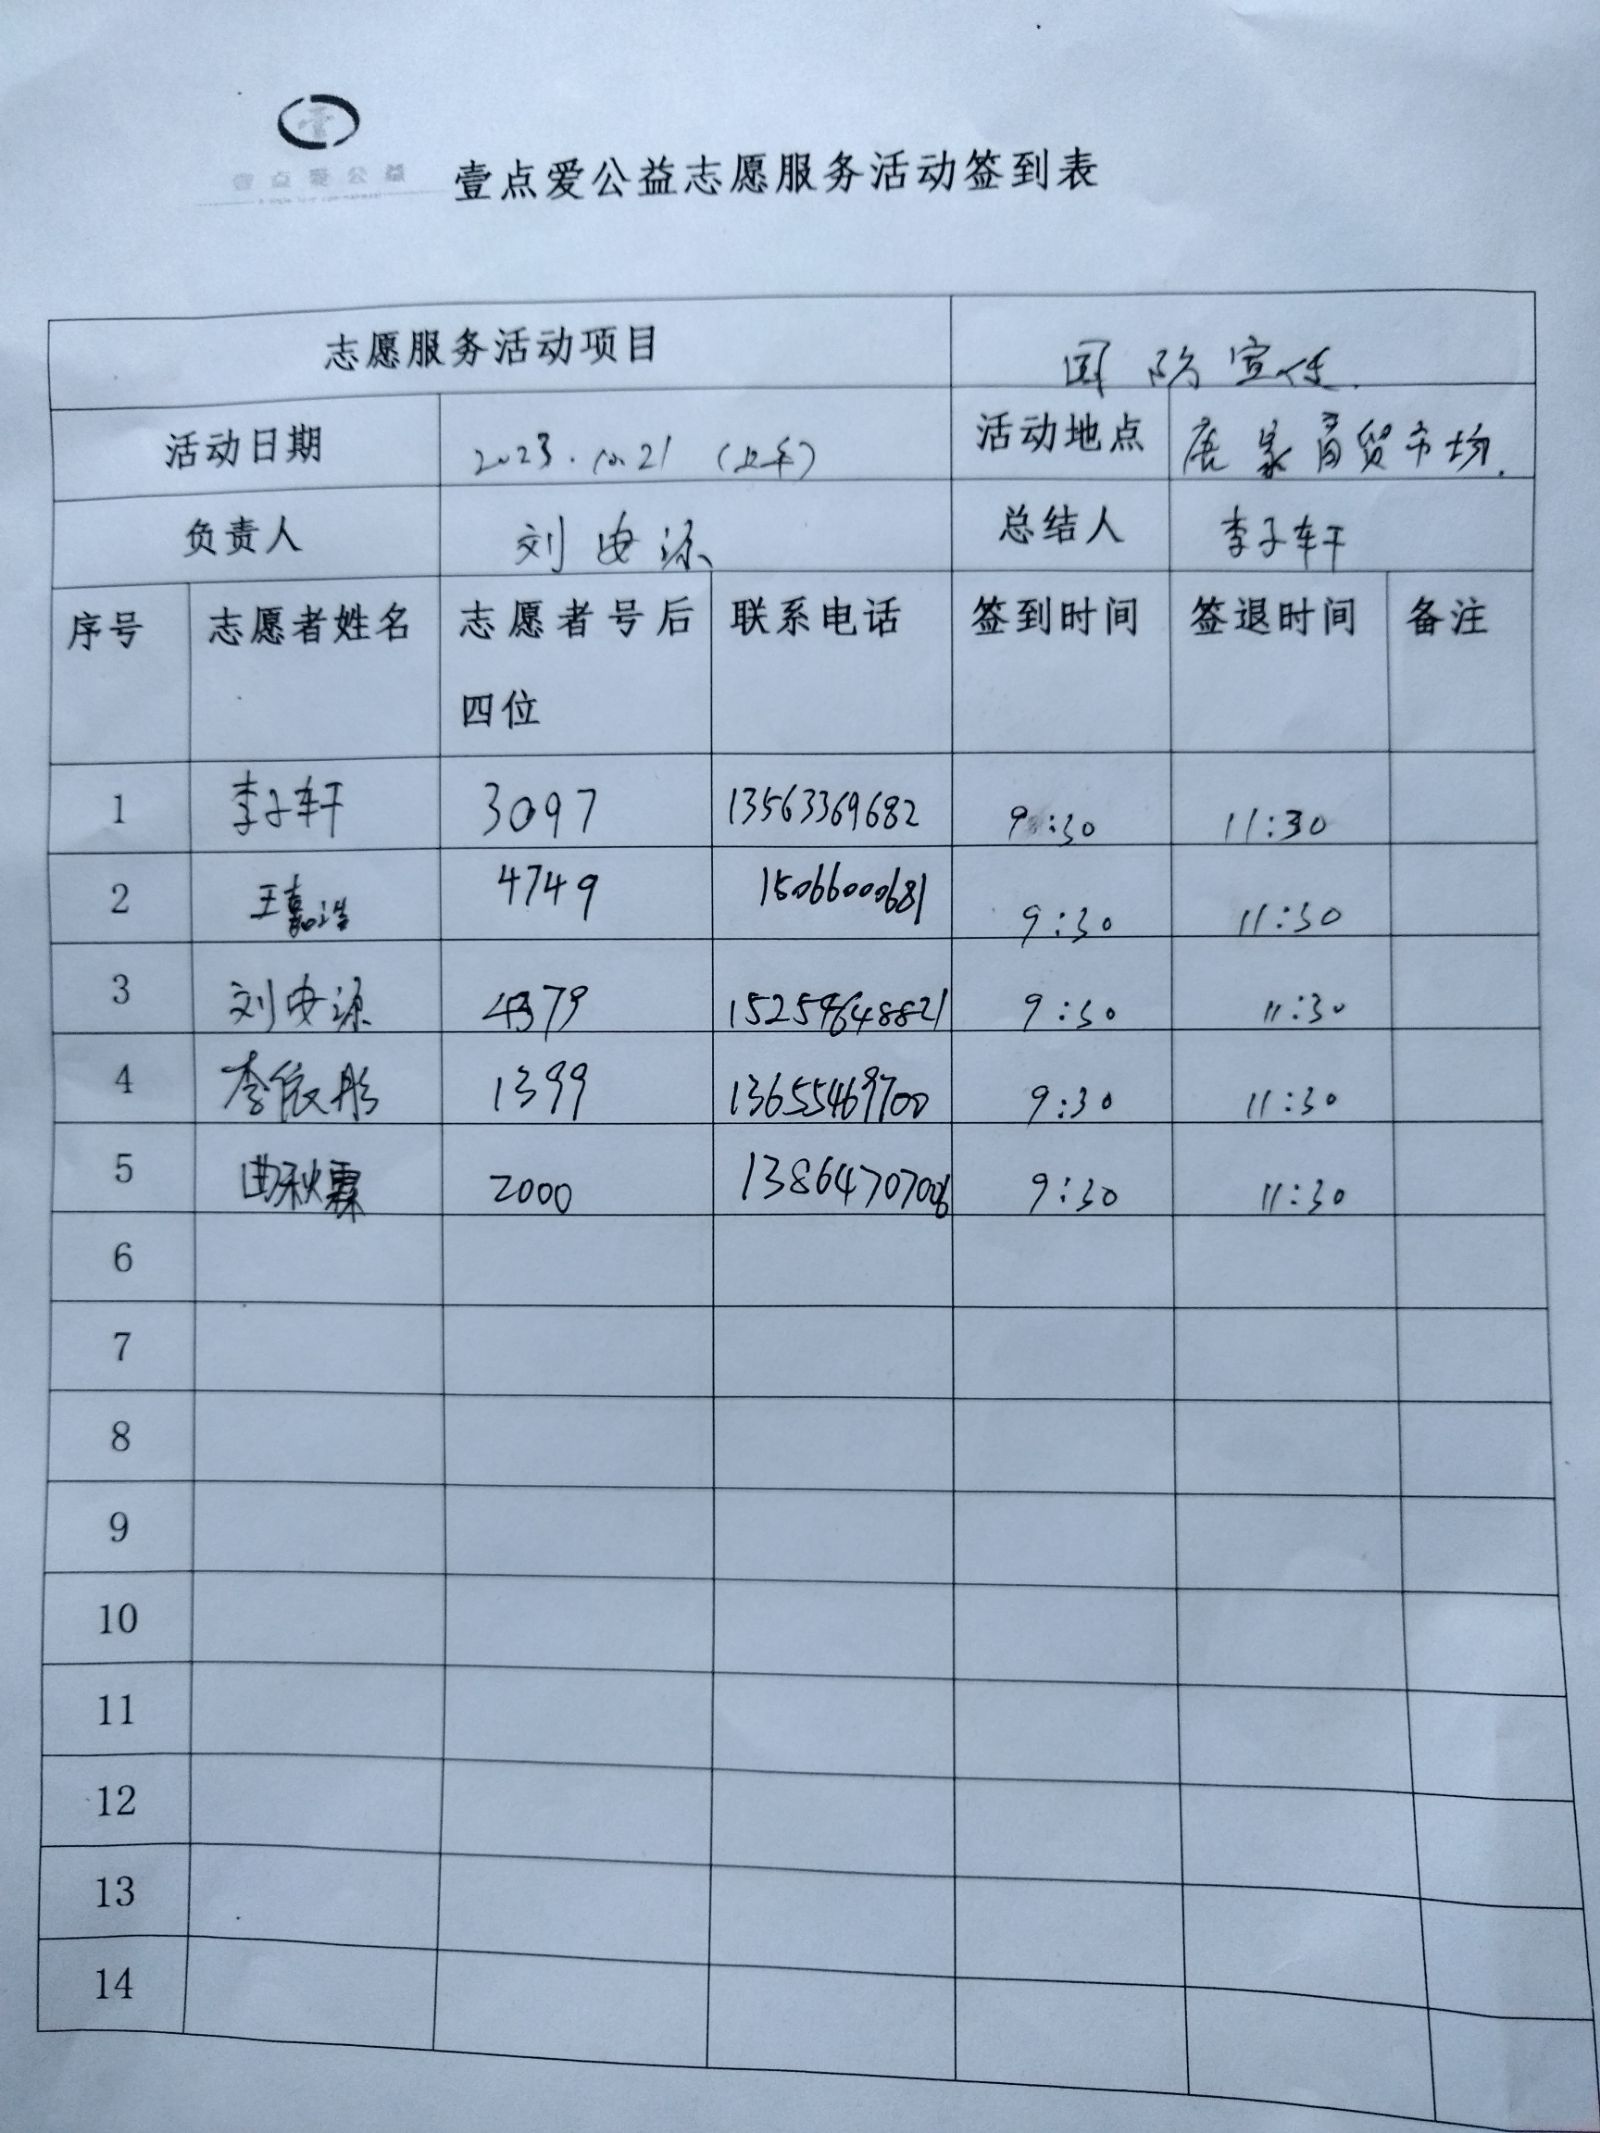 壹点爱公益
壹点爱公益志愿服务活动签到表
志愿服务活动项目 国防宣传
活动日期 2023.10.21（上午） 活动地点 唐家商贸市场.
负责人 刘安源 总结人 李子轩
序号 志愿者姓名 志愿者号后 联系电话 签到时间 签退时间 备注
四位
1 李子轩 3097 13563369682 9:30 11:30
2 王嘉浩 4749 15066000681 9:30 11:30
3 刘安源 4379 9:30 11:30
4 李依彤 1399 13655469700 9:30 11:30
5 曲秋霖 2000 9:30 11:30
6
7
8
9
10
11
12
13
14